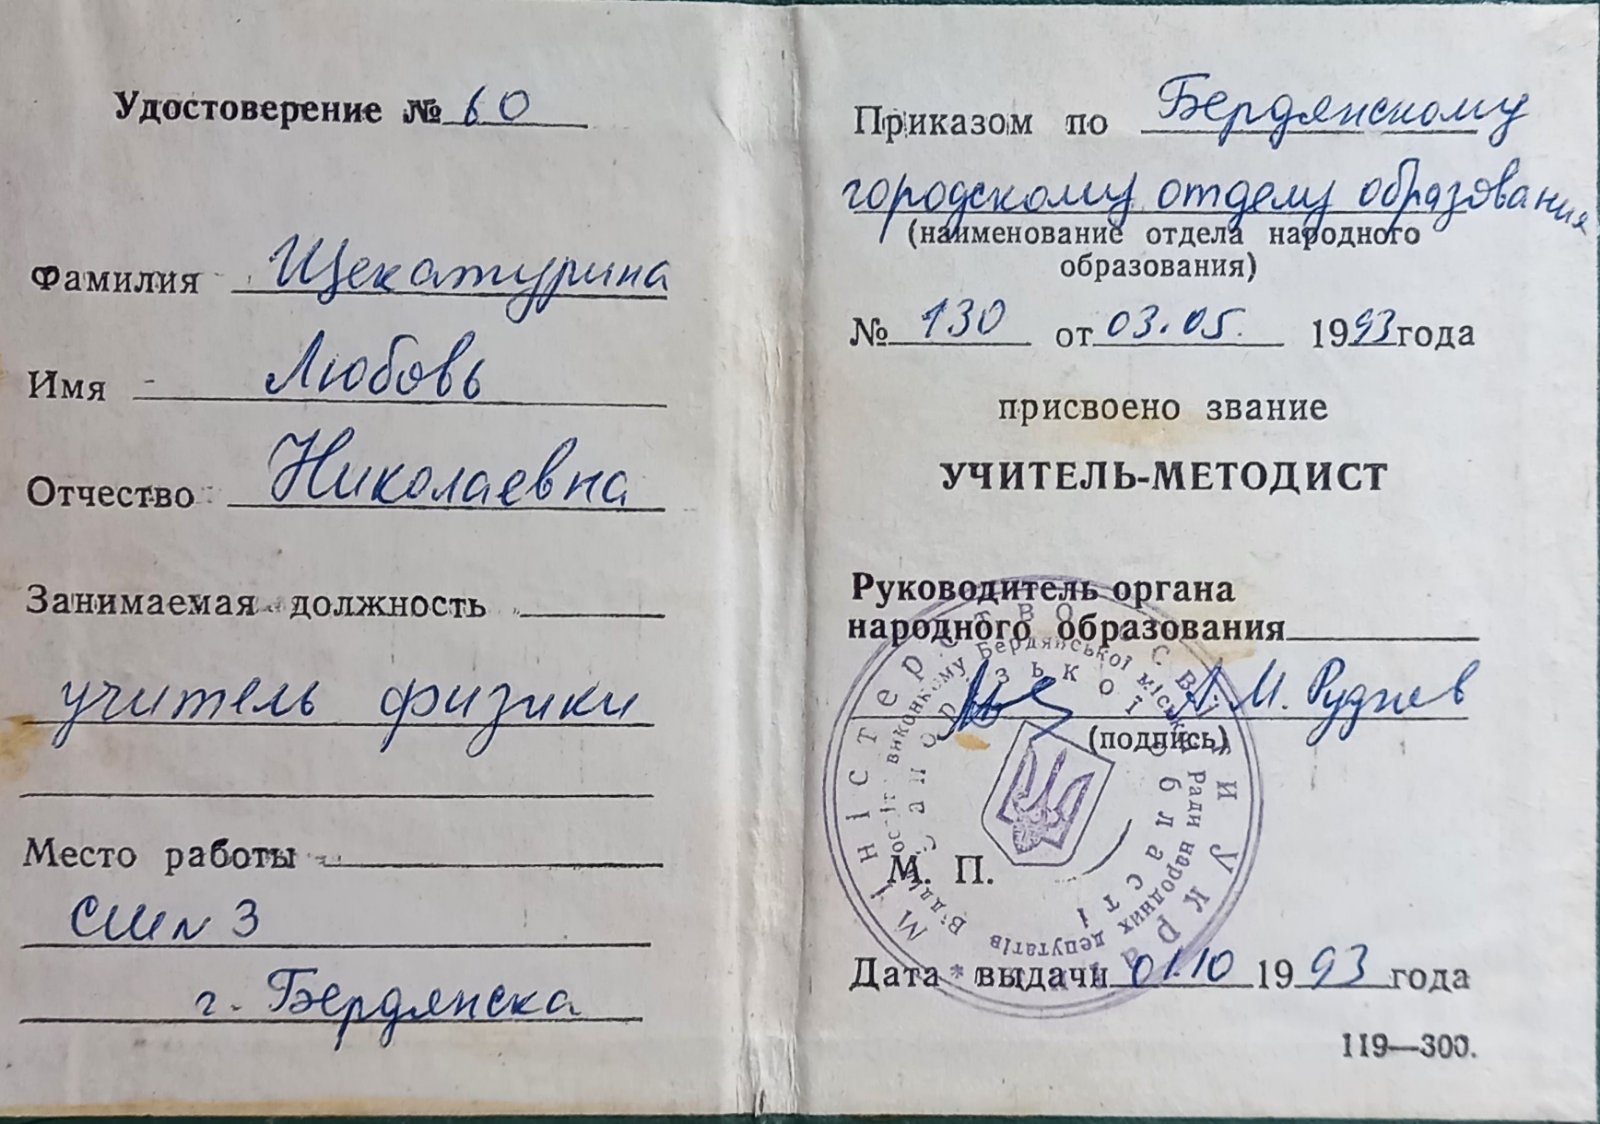 Удостоверение № 60
Фамилия Щекатурина
Имя Любовь
Отчество Николаевна
Занимаемая должность
учитель физики
Место работы
СШ № 3
г. Бердянска
Приказом по Бердянскому
городскому отделу образования
(наименование отдела народного
образования)
№ 130 от 03.05. 1993 года
присвоено звание
УЧИТЕЛЬ-МЕТОДИСТ
Руководитель органа
народного образования
А.М. Руднев
(подпись)
М. П.
Дата выдачи 01.10 1993 года
119—300.
Міністерство освіти України
Відділ освіти виконкому Бердянської міської Ради народних депутатів
Запорізької області